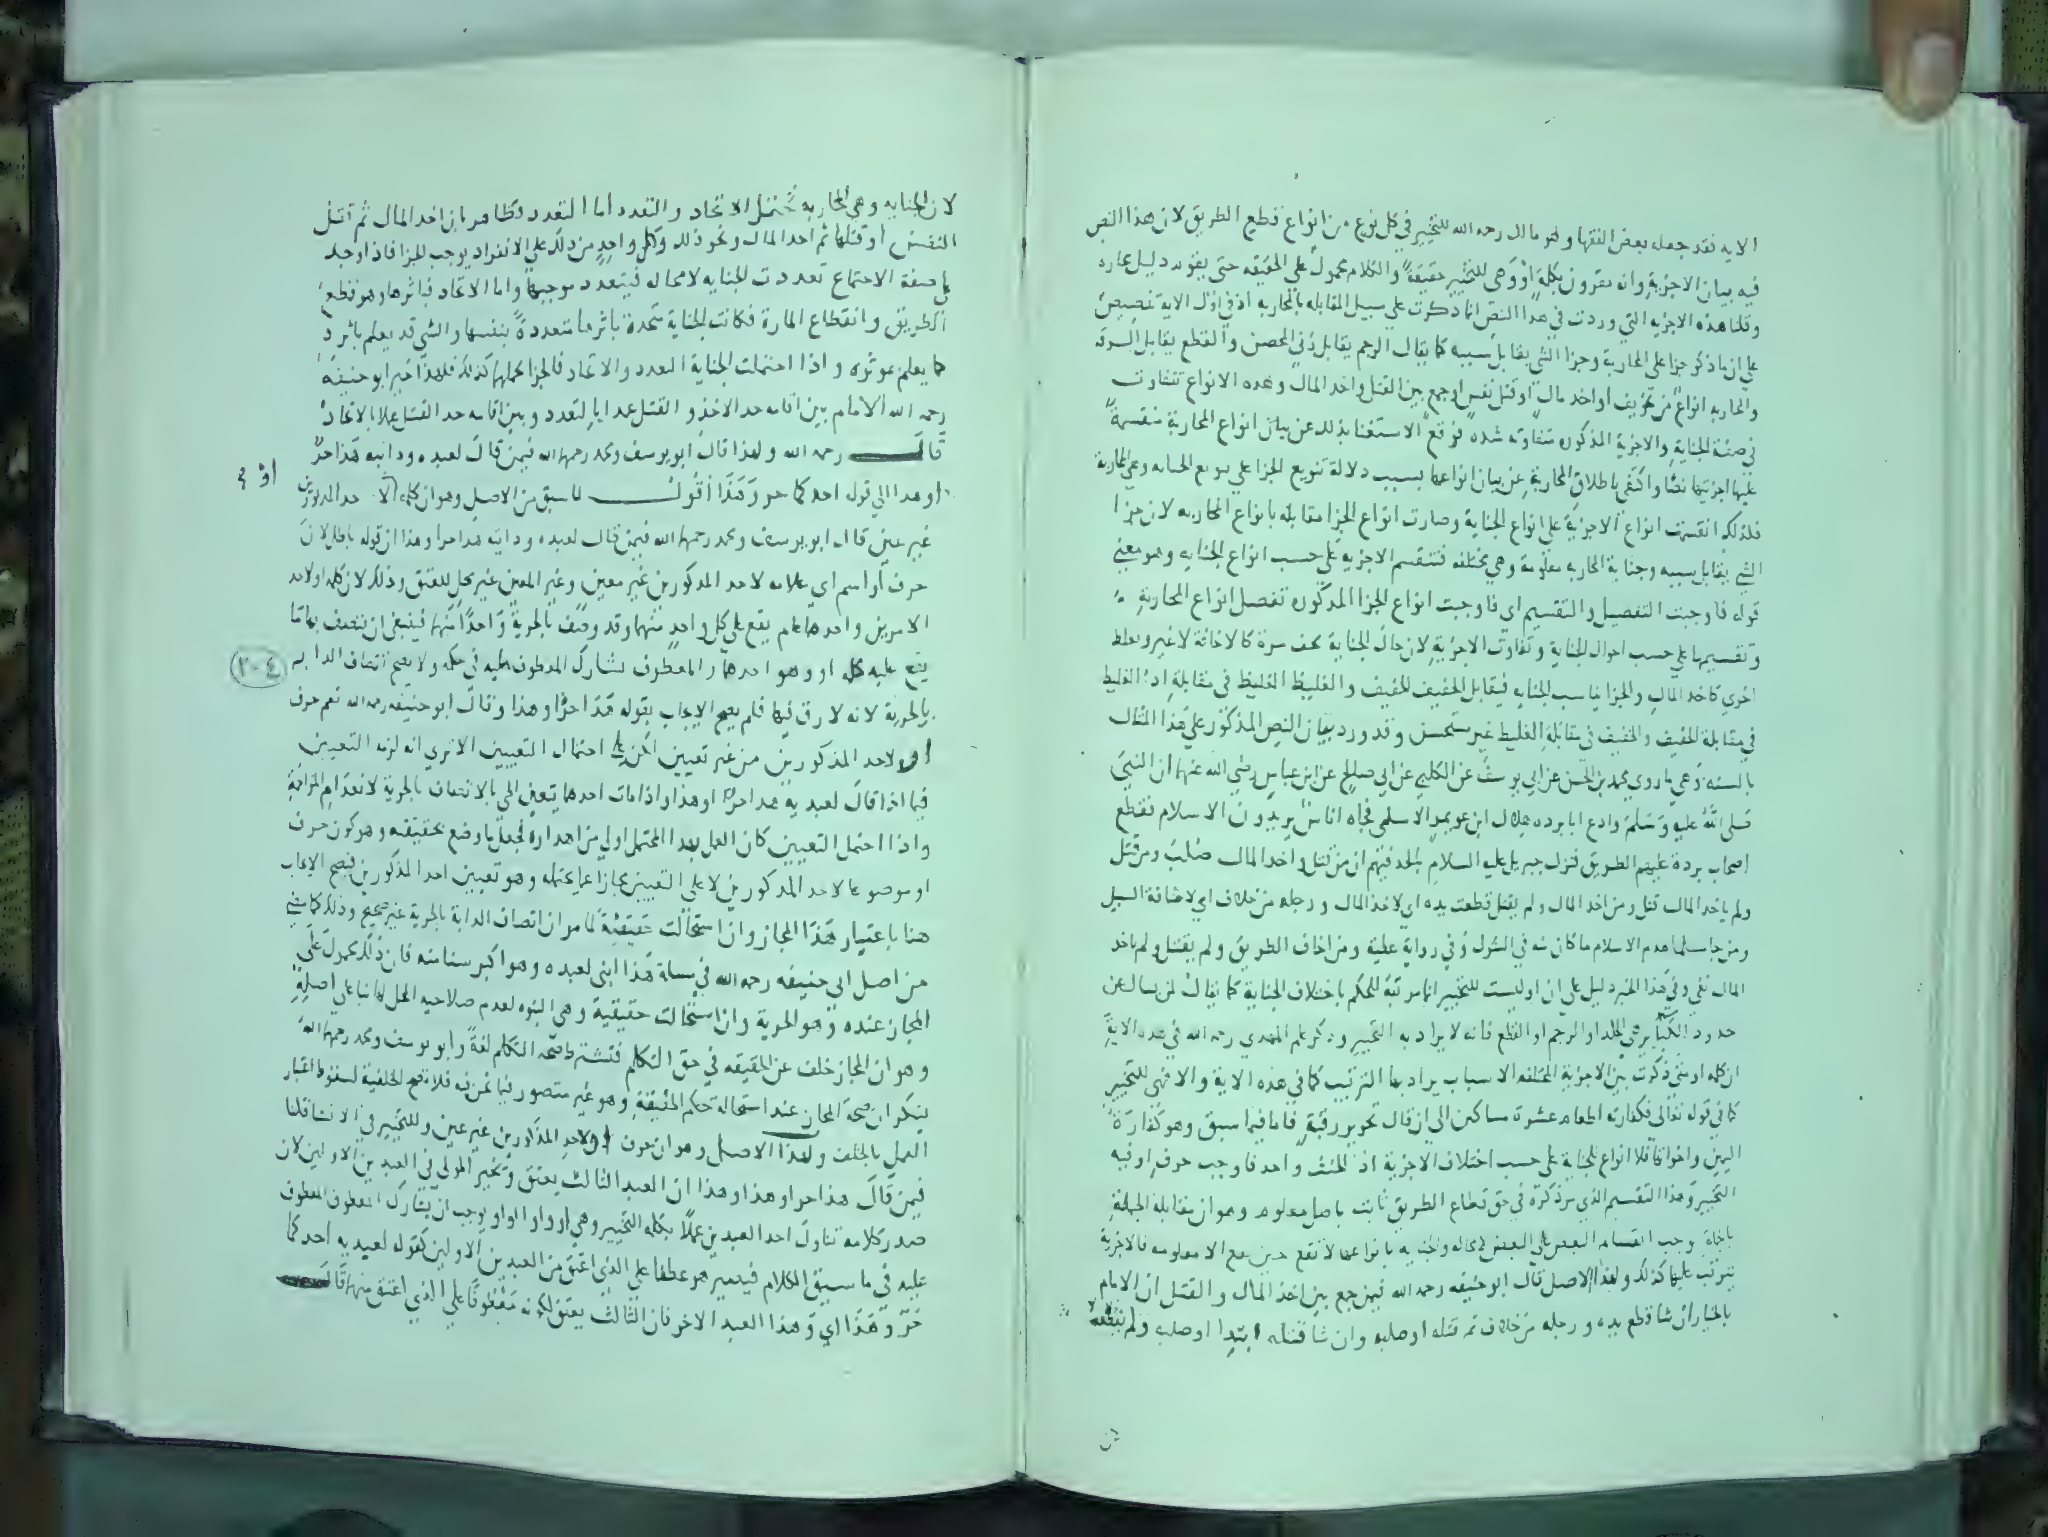 الايه فقد جعله بعض الفقها وهو مالك رحمه الله للتخيير في كل نوع من انواع قطع الطريق لان هذا النص
فيه بيان الاجزية وانه مقرون بكلمة اوْ وَهي للتخيير حقيقةً والكلام محمول على الحقيقه حتى يقوم دليل مجازه
وقلنا هذه الاجزيه التي وردت في هذا النص انما ذكرت على سبيل المقابله بالمحاربه اذ في اول الاية تنصيصٌ
على ان ما ذكر جزا على المحاربة وجزا الشي يقابل بسببه كما يقال الرجم يقابل زني المحصن والقطع يقابل السرقه
والمحاربه انواعٌ من تخويف او اخذ مال او قتل نفسٍ او جمع بين القتل واخذ المال وهذه الانواع تتفاوت
في صفة الجناية والاجزية المذكوره متفاوته شده فوقع الاستغنا بذلك عن بيان انواع المحاربة منقسمةً
عليها اجزيتها نصًّا واكتفي باطلاق المحاربة عن بيان انواعها بسبب دلالة تنويع الجزا على تنويع الجنايه وهي المحاربة
فلذلك انقسمت انواع الاجزية على انواع الجناية وصارت انواع الجزا مقابله بانواع المحاربه لان جزا
الشي يقابل بسببه وجناية المحاربه معلومة وهي مختلفه فتنقسم الاجزيه على حسب انواع الجنايه وهو معني
قوله فاوجبت التفصيل والتقسيم اي فاوجبت انواع الجزا المذكوره تفصيل انواع المحاربة
وتقسيمها على حسب احوال الجناية وتفاوت الاجزية لان حال الجناية تخف مرة كالاخافة لا غير وتغلظ
اخري كاخذ المال والجزا يناسب الجنايه فيقابل الخفيف الخفيف والغليظ الغليظ في مقابلة اذ الغليظ
في مقابلة الخفيف والخفيف في مقابلة الغليظ غير مستحسن وقد ورد بيان النص المذكور على هذا المثال
بالسنه وَهي ما روي محمد بن الحسن عن ابي يوسف عن الكلبي عن ابي صالح عن ابن عباس رضي الله عنهما ان النبي
صَلى اللهُ عليهِ وَسَلم وادع ابا برده هلال ابن عويمر الاسلمي فجاه اناس يريدون الاسلام فقطع
اصحاب بردة عليهم الطريق فنزل جبريل عليه السلام بالحد فيهم ان من قتل واخذ المال صُلبَ ومن قتل
ولم ياخذ المال قتل ومن اخذ المال ولم يقتل قطعت يده اي لاخذ المال ورجله من خلاف اي لاخافة السبيل
ومن جا مسلما هدم الاسلام ما كان منه في الشرك وُفي رواية عطية ومن اخاف الطريق ولم يقتل ولم ياخذ
المال نفي وفي هذا الخبر دليل على ان او ليست للتخيير انما مرتبة للحكم باختلاف الجناية كما يقال لمن يسال عن
حدود الكباير هي الجلد او الرجم او القطع فانه لا يراد به التخيير وذكر علم الهدي رحمه الله في هذه الاية
ان كلمه او متي ذكرت بين الاجزية المختلفه الاسباب يراد بها الترتيب كما في هذه الاية والا فهي للتخيير
كما في قوله تعالى فكفارته اطعام عشرة مساكين الى ان قال تحرير رقبةٍ فاما فيما سبق وهو كفارَةُ
اليمين واخواتها فلا انواع للجناية على حسب اختلاف الاجزية اذ الحنث واحد فاوجب حرف او فيه
التخيير وَهذا التقسيم الذي مر ذكره في حق قطاع الطريق ثابت باصل معلوم وهو ان مقابلة الجملةِ
بالجملة توجب انقسام البعض على البعض لا محاله والجنايه بانواعها لا تقع حين تقع الا معلومه فالاجزية
تترتب عليها كذلك ولهذا الاصل قال ابو حنيفه رحمه الله فيمن جمع بين اخذ المال والقتل ان الامام
بالخيار ان شا قطع يده ورجله من خلاف ثم قتله او صلبه وان شا قتله ابتدا او صلبه ولم يقطعه
لان الجنايه وهي المحاربه تحتمل الاتحاد والتعدد اما التعدد فظاهر بان اخذ المال ثم قتل
النفس او قتلها ثم اخذ المال ونحو ذلك وكل واحدٍ من ذلك على الانفراد يوجب الجزا فاذا وجد
على صفة الاجتماع تعددت الجنايه لا محاله فيتعدد موجبها واما الاتحاد فباثرها وهو قطع
الطريق وانقطاع المارة فكانت الجناية متحدة باثرها متعددةً بنفسها والشي قد يعلم باثره
كما يعلم بموثره واذا احتملت الجناية التعدد والاتحاد فالجزا يحملها كذلك فلهذا خير ابو حنيفه
رحمه الله الامام بين اقامه حد الاخذ والقتل عملا بالتعدد وبين اقامه حد القتل عملا بالاتحاد
قال رحمه الله ولهذا قال ابو يوسف ومحمد رحمهما الله فيمن قال لعبده ودابته هذا حرٌّ
او هذا الى قوله احد كما حر وَهَذا اقول لما سبق من الاصل وهو ان كلمه او لاحد المذكورين
اوْ
غير عين قال ابو يوسف ومحمد رحمهما الله فيمن قال لعبده ودابته هذا حر او هذا ان قوله باطل لان
حرف او اسم اي علامه لاحد المذكورين غير معين وغير المعين غير محلٍ للعتق وذلك لان كلمه او لاحد
الامرين واحدهما عام يقع على كل واحدٍ منهما وقد وصف بالحرية وَاحدًا منهما فينبغي ان تتصف بها ما
يقع عليه كلمه او وهو احدهما والمعطوف يشارك المعطوف عليه في حكمه ولا يصح اتصاف الدابه
٢٠٤
بالحرية لانه لا رق فيها فلم يصح الايجاب بقوله هَذا حرٌّ او هذا وقال ابو حنيفه رحمه الله نعم حرف
او لاحد المذكورين من غير تعيين لكن على احتمال التعيين الا تري انه لزمه التعيين
فيما اذا قال لعبديه هذا حر او هذا واذا مات احدهما يتعين الحي بالاتصاف بالحرية لانعدام المزاحمةِ
واذا احتمل التعيين كان العمل بهذا المحتمل اولي من اهداره فجعل ما وضع لحقيقته وهو كون حرف
او موضوعا لاحد المذكورين لا على التعيين مجازا عما يحتمله وهو تعيين احد المذكورين فيصح الايجاب
هنا باعتبار هَذا المجاز وان استحالت حقيقتهُ لما مر ان اتصاف الدابة بالحرية غير صحيح وذلك كما مضي
من اصل ابي حنيفه رحمه الله في مسالة هَذا ابني لعبده وهو اكبر سنا منه فان ذلك محمول على
المجاز عنده وَهو الحرية وان استحالت حقيقته وهي البنوه لعدم صلاحيه المحل لها بنا على اصلهِ
وهو ان المجاز خلف عن الحقيقه في حق التكلم فتشترط صحة التكلم لغةً وابو يوسف ومحمد رحمهما الله
ينكران صحة المجاز عند استحالة حكم الحقيقةِ وهو غير متصور فيما نحن فيه فلا تصح الخلفية لسقوط اعتبار
العمل بالخلف ولهذا الاصل وهو ان حرف او لاحد المذكورين غير عين وللتخيير في الانشا قلنا
فيمن قال هذا حر او هذا وهذا ان العبد الثالث يعتق وتخير المولى في العبدين الاولين لان
صدر كلامه تناول احد العبدين عملًا بكلمه التخيير وهي او والواو يوجب ان يشارك المعطوف المعطوف
عليه في ما سيق له الكلام فيصير هو عطفا على الذي اعتق من العبدين الاولين كقوله لعبديه احد كما
حَرّ وَهَذا اي وَهذا العبد الاخر فان الثالث يعتق لكونه مَعطوفًا على الذي اعتق منهما قال